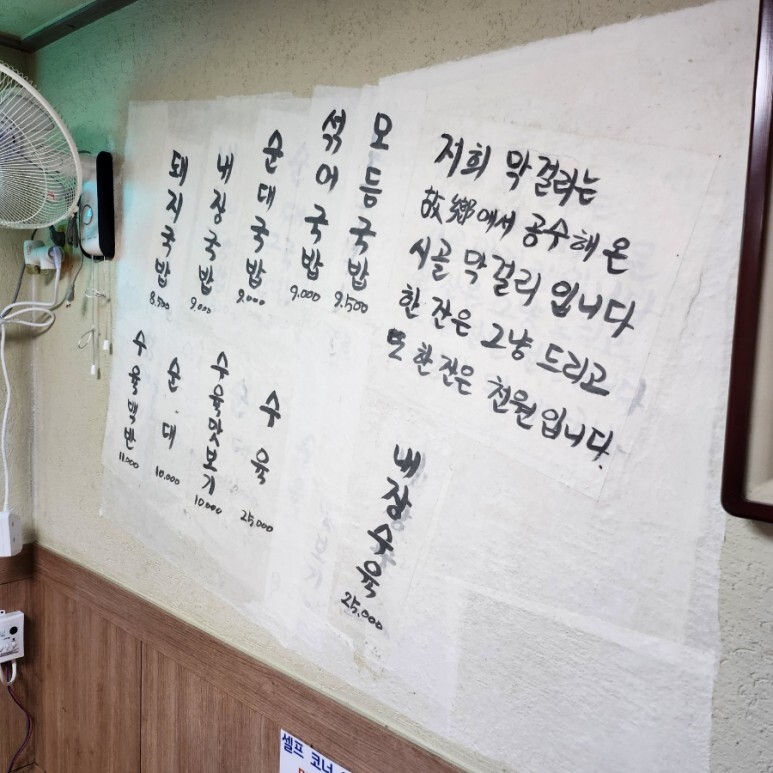 돼지국밥
8,500
내장국밥
9,000
순대국밥
9,000
섞어국밥
9,000
모듬국밥
9,500
저희 막걸리는
故鄕에서 공수해 온
시골 막걸리 입니다
한 잔은 그냥 드리고
또 한 잔은 천원입니다.
수육백반
11,000
순대
10,000
수육맛보기
10,000
수육
25,000
내장수육
25,000
셀프 코너